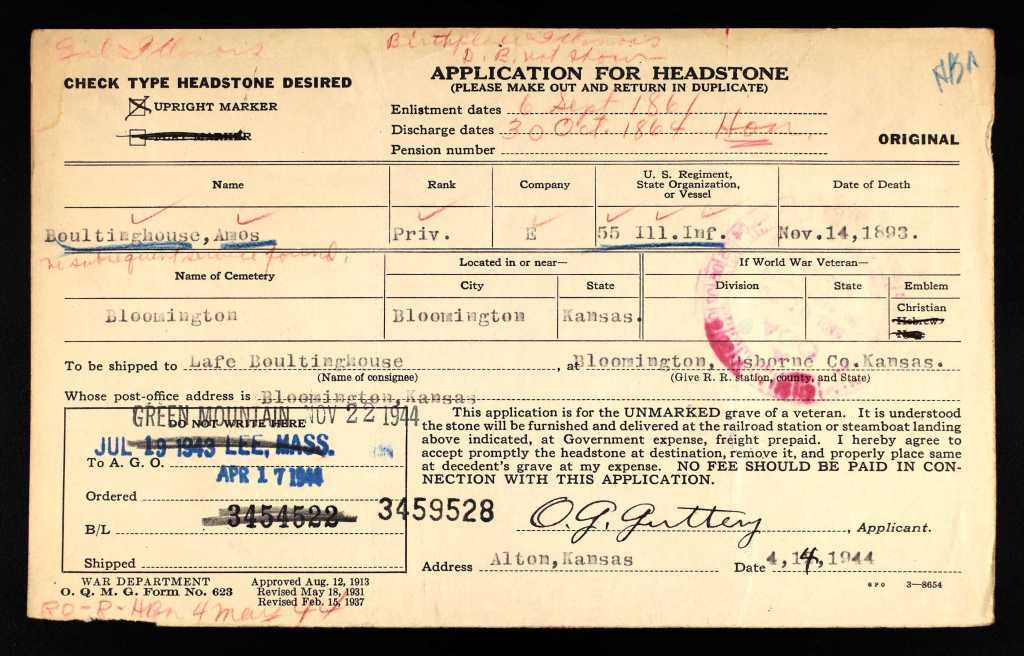 Illinois
Birthplace Illinois
D. B. not shown
HBA
CHECK TYPE HEADSTONE DESIRED
UPRIGHT MARKER
FLAT MARKER
APPLICATION FOR HEADSTONE
(PLEASE MAKE OUT AND RETURN IN DUPLICATE)
Enlistment dates 6 Sept 1861
Discharge dates 30 Oct. 1864 Hon.
Pension number
ORIGINAL
Name Rank Company U. S. Regiment, State Organization, or Vessel Date of Death
Boultinghouse, Amos Priv. E 55 Ill. Inf. Nov. 14, 1893.
no subsequent service found.
Name of Cemetery Located in or near— If World War Veteran—
City State Division State Emblem
Bloomington Bloomington Kansas. Christian
Hebrew
None
To be shipped to Lafe Boultinghouse, at Bloomington, Osborne Co. Kansas.
(Name of consignee) (Give R. R. station, county, and State)
Whose post-office address is Bloomington, Kansas
GREEN MOUNTAIN NOV 22 1944
DO NOT WRITE HERE
JUL 19 1943 LEE, MASS.
To A. G. O.
APR 17 1944
Ordered
3454522 3459528
B/L
Shipped
This application is for the UNMARKED grave of a veteran. It is understood
the stone will be furnished and delivered at the railroad station or steamboat landing
above indicated, at Government expense, freight prepaid. I hereby agree to
accept promptly the headstone at destination, remove it, and properly place same
at decedent's grave at my expense. NO FEE SHOULD BE PAID IN CON-
NECTION WITH THIS APPLICATION.
O. G. Guttery, Applicant.
Address Alton, Kansas Date 4, 14, 1944
WAR DEPARTMENT
O. Q. M. G. Form No. 623
Approved Aug. 12, 1913
Revised May 18, 1931
Revised Feb. 15, 1937
GPO 3—8654
4 May 44